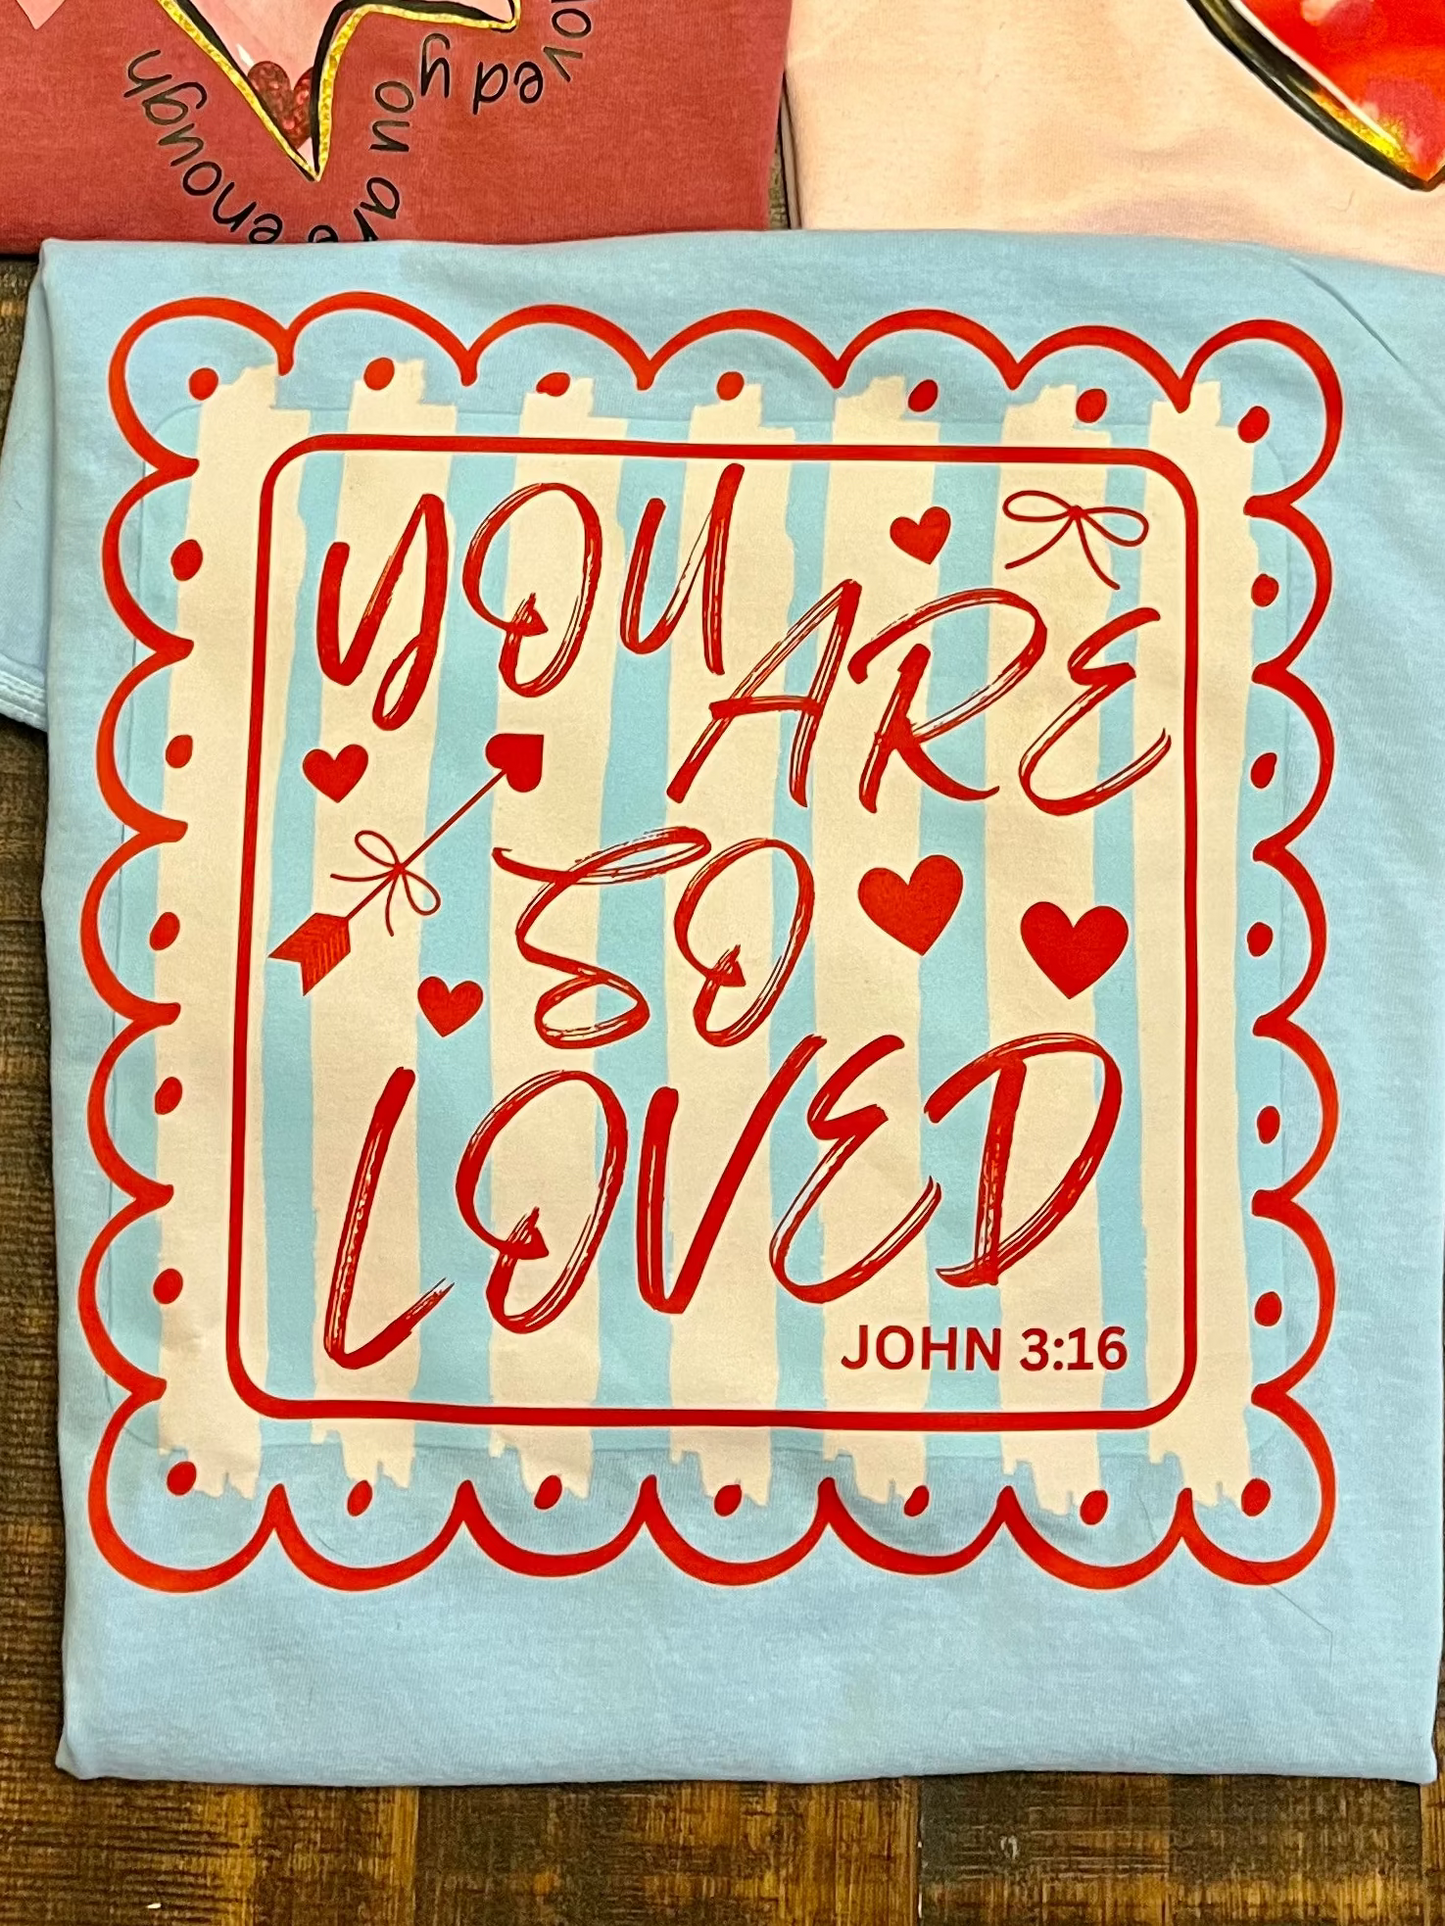 loved y
ou are
enough
YOU
ARE
SO
LOVED
JOHN 3:16